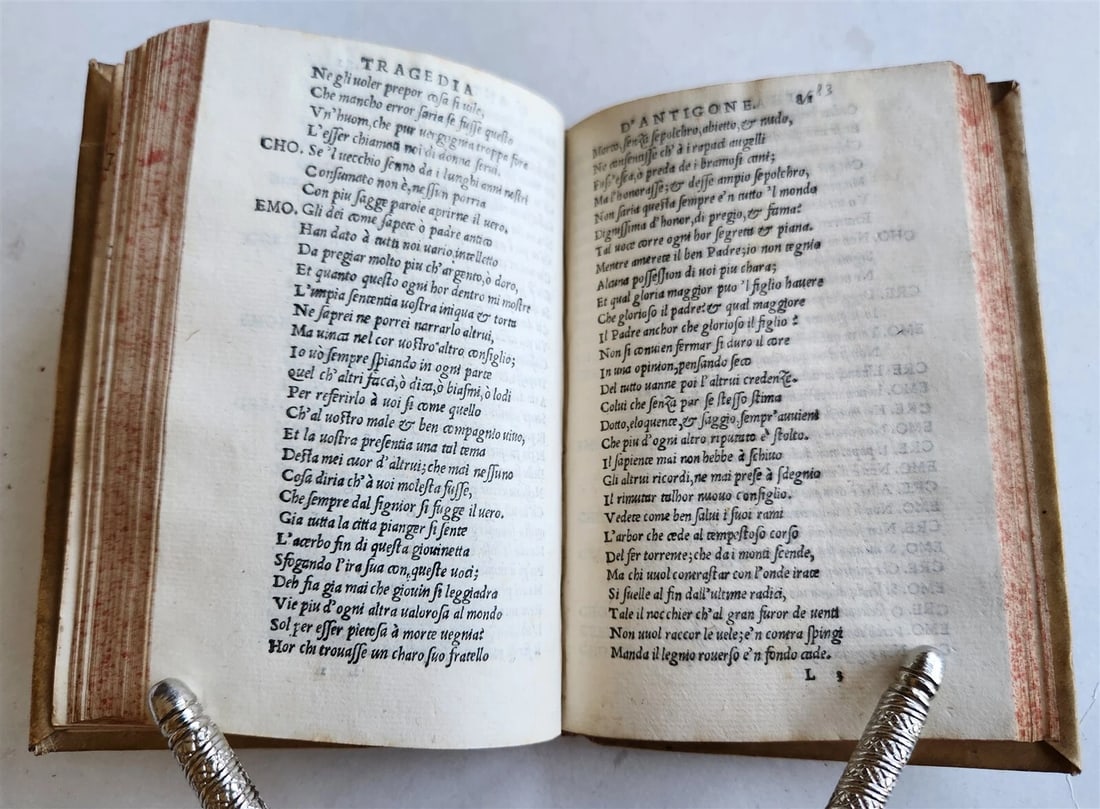 TRAGEDIA
Ne gli uoler prepor cosa si uile,
Che mancho error saria se fusse questo
Vn'huom, che pur uergognia troppo fora
L'esser chiamati noi di donna serui.
CHO. Se 'l uecchio senno da i lunghi anni nostri
Consumato non è, nessun porria
Con piu sagge parole aprirne il uero.
EMO. Gli dei come sapete ò padre antico
Han dato à tutti noi uario intelletto
Da pregiar molto piu ch'argento, ò doro,
Et quanto questo ogni hor dentro mi mostre
L'impia sententia uostra iniqua & torta
Ne saprei ne porrei narrarlo altrui,
Ma uinca nel cor uostro altro consiglio;
Io uò sempre spiando in ogni parte
quel ch'altri facci, ò dica, ò biasmi, ò lodi
Per referirlo à uoi si come quello
Ch'al uostro male & ben compagnio uiuo,
Et la uostra presentia una tal tema
Desta mei cuor d'altrui; che mai nessuno
Cosa diria ch'à uoi molesta fusse,
Che sempre dal signior si fugge il uero.
Gia tutta la citta pianger si sente
L'acerbo fin di questa giouinetta
Sfogando l'ira sua con queste uoci;
Deh fia gia mai che giouin si leggiadra
Vie piu d'ogni altra ualorosa al mondo
Sol per esser pietosa à morte uegnia?
Hor chi trouasse un charo suo fratello
D'ANTIGONE. 81 83
Morto, senza sepolchro, abietto, & nudo,
Ne consentisse ch'à i rapaci augelli
Fuss'esca, ò preda de i bramosi cani;
Ma l'honorasse; & desse ampio sepolchro,
Non saria questa sempre e'n tutto 'l mondo
Dignissima d'honor, di pregio, & fama?
Tal uoce corre ogni hor segreta & piana.
Mentre amerete il ben Padre; io non tegnio
Alcuna possession di uoi piu chara;
Et qual gloria maggior puo 'l figlio hauere
Che glorioso il padre? & qual maggiore
Il Padre anchor che glorioso il figlio?
Non si conuien fermar si duro il core
In una opinion, pensando seco
Del tutto uanne poi l'altrui credenze.
Colui che senza par se stesso stima
Dotto, eloquente, & saggio, sempr'auuient
Che piu d'ogni altro riputato è stolto.
Il sapiente mai non hebbe à schiuo
Gli altrui ricordi, ne mai prese à sdegnio
Il rimutar talhor nuouo consiglio.
Vedete come ben salui i suoi rami
L'arbor che cede al tempestoso corso
Del fer torrente; che da i monti scende,
Ma chi uuol contrastar con l'onde irate
Si suelle al fin dall'ultime radici,
Tale il nocchier ch'al gran furor de uenti
Non uuol raccor le uele; e'n contra spingi
Manda il legnio rouerso e'n fondo cade.
L 3